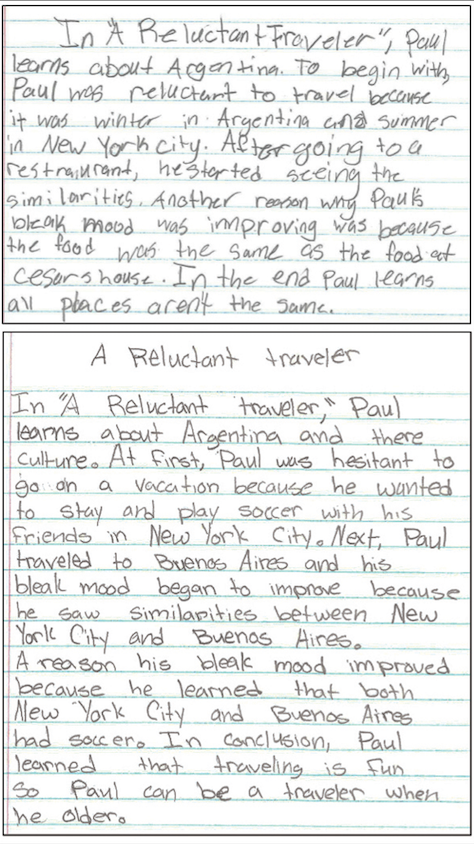 In "A Reluctant Traveler", Paul
learns about Argentina. To begin with,
Paul was reluctant to travel because
it was winter in Argentina and summer
in New York city. After going to a
restraurant, he started seeing the
similarities. Another reason why Paul's
bleak mood was improving was because
the food was the same as the food at
cesars house. In the end Paul learns
all places aren't the same.
A Reluctant traveler
In "A Reluctant traveler," Paul
learns about Argentina and there
culture. At first, Paul was hesitant to
go on a vacation because he wanted
to stay and play soccer with his
friends in New York City. Next, Paul
traveled to Buenos Aires and his
bleak mood began to improve because
he saw similarities between New
York City and Buenos Aires.
A reason his bleak mood improved
because he learned that both
New York City and Buenos Aires
had soccer. In conclusion, Paul
learned that traveling is fun
so Paul can be a traveler when
he older.